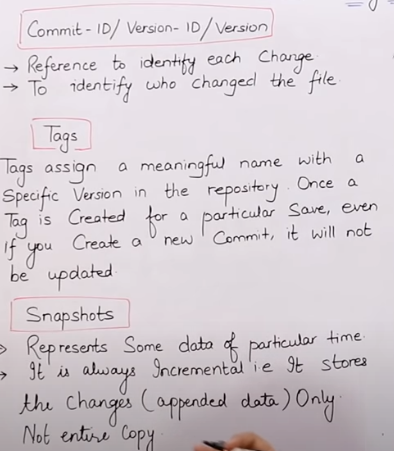 Commit-ID/Version-ID/Version
→ Reference to identify each Change.
→ To identify who changed the file.
Tags
Tags assign a meaningful name with a
Specific Version in the repository. Once a
Tag is Created for a particular Save, even
if you Create a new Commit, it will not
be updated.
Snapshots
→ Represents Some data of particular time.
→ It is always Incremental i.e It stores
the Changes (appended data) Only.
Not entire Copy.